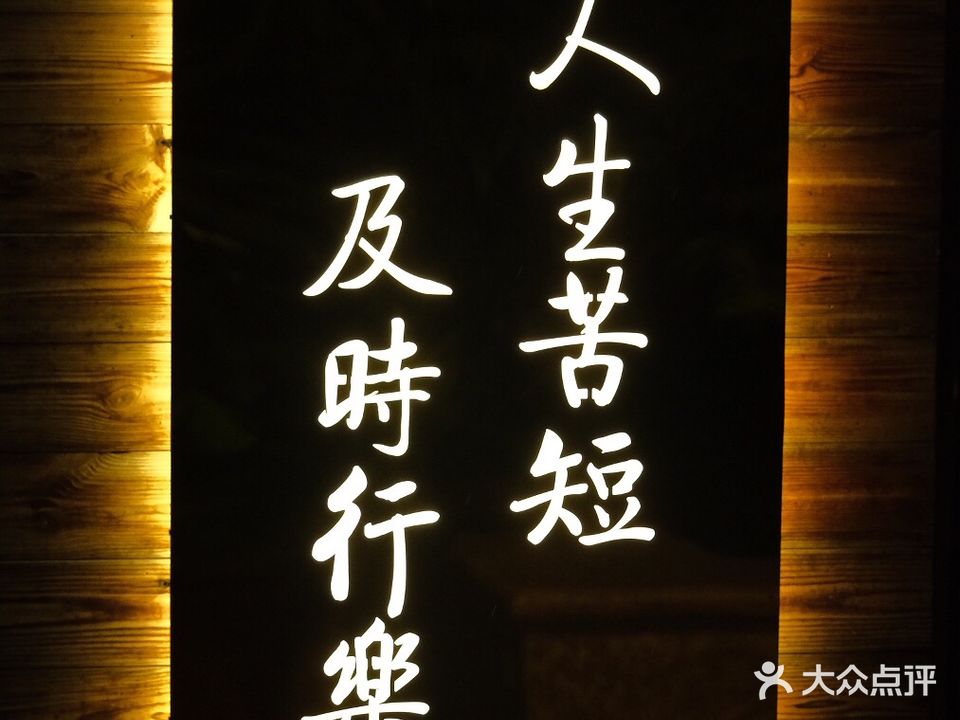 人生苦短
及時行樂
大众点评